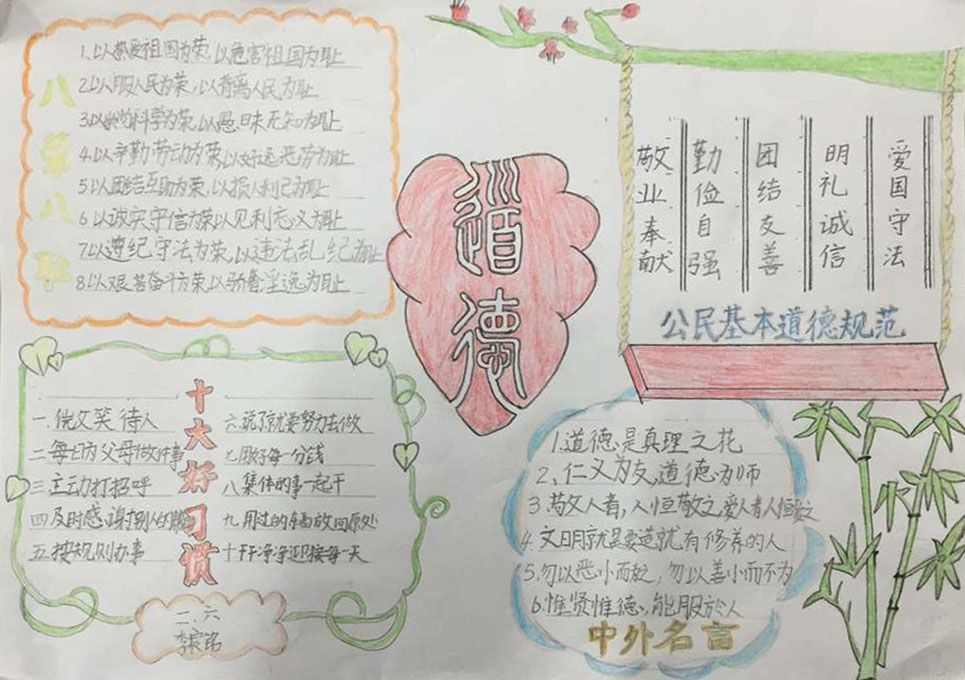 八荣八耻
1.以热爱祖国为荣,以危害祖国为耻
2以服人民为荣,以背离人民为耻
3以崇尚科学为荣,以愚昧无知为耻
4.以辛勤劳动为荣以好逸恶劳为耻
5以团结互助为荣,以损人利己为耻
6以诚实守信为荣以见利忘义为耻
7以遵纪守法为荣,以违法乱纪为耻
8以艰苦奋斗为荣以骄奢淫逸为耻
道德
敬业奉献
勤俭自强
团结友善
明礼诚信
爱国守法
公民基本道德规范
十大好习惯
一.微笑待人
二每日为父母做件事
三主动打招呼
四及时感谢别人的
五按规则办事
六说了就要努力去做
七用好每一分钱
八集体的事一起干
九用过的东西放回原处
十干干净净迎接每一天
二.六
李
1.道德是真理之花
2、仁义为友,道德为师
3敬人者,人恒敬之爱人者人恒爱之
4.文明就是要造就有修养的人
5.勿以恶小而为之,勿以善小而不为
6.惟贤惟德,能服於人
中外名言